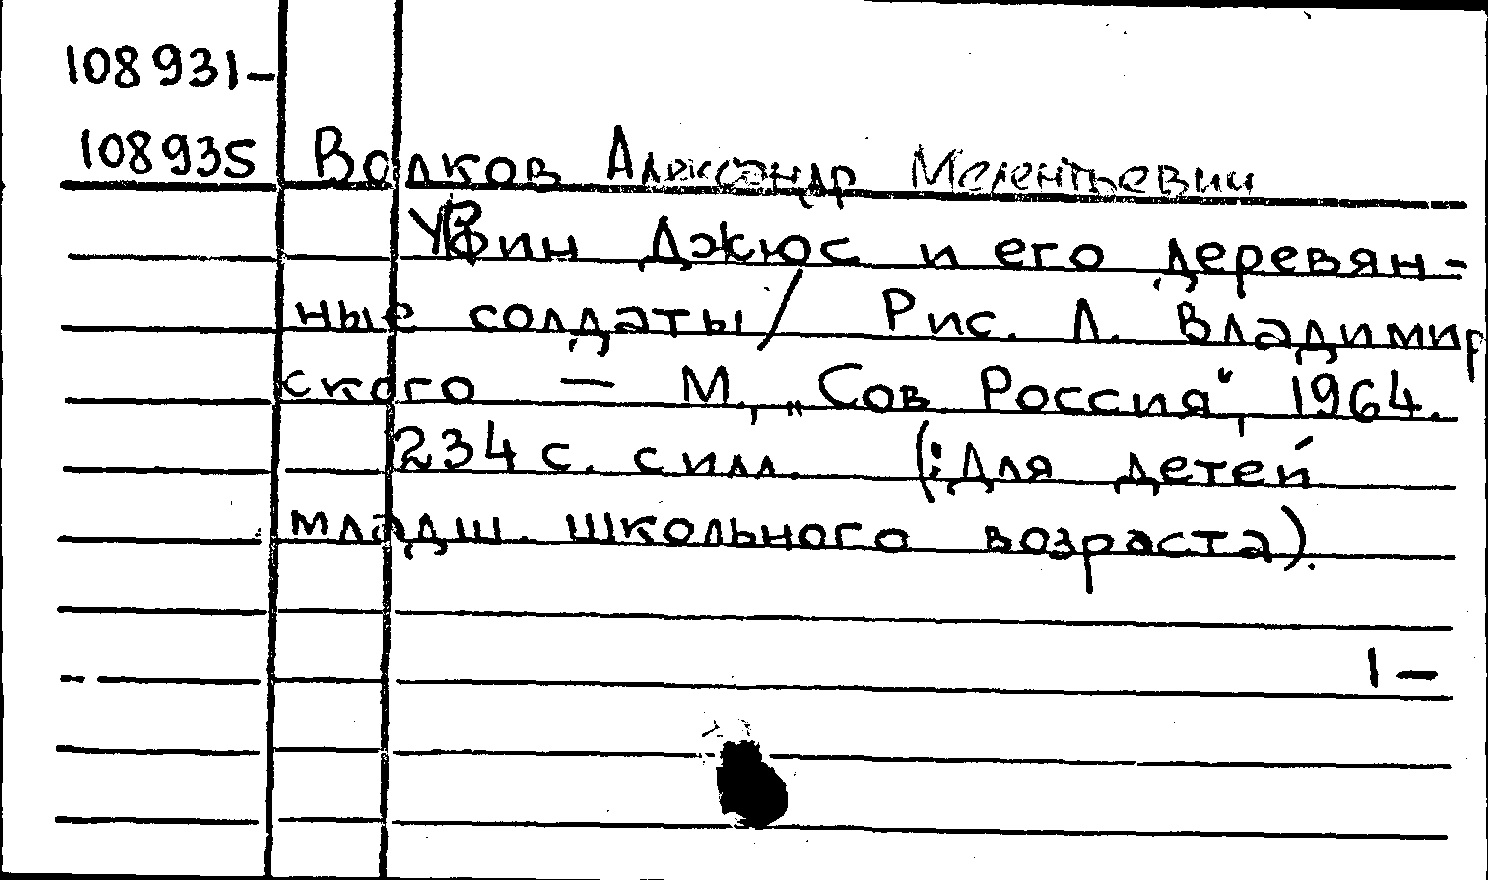 108931-
108935 Волков Александр Мелентьевич
Урфин Джюс и его деревян-
ные солдаты/ Рис. Л. Владимир
ского — М., „Сов. Россия“, 1964.
234 с. с илл. (:Для детей
младш. школьного возраста).
1 -